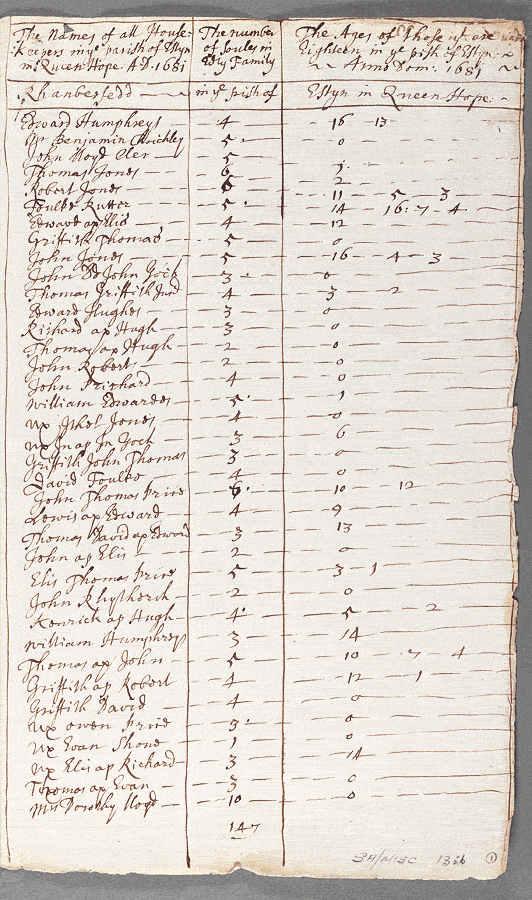 The Names of all House-
keepers in ye parish of Estyn
in Queen Hope. AD. 1681
The number
of soules in
Ev'ry Family
The Ages of those yt are under
Eighteen in ye p'ish of Estyn
Anno Dom: 1681
Rhanberfedd in ye p'ish of Estyn in Queen Hope
Edward Humphreys 4 16 13
Mr Benjamin Critchley 5 0
John Lloyd Cler 5
Thomas Jones 6 1
Robert Jones 6 2
Foulke Rutter 5 11 5 3
Edward ap Elis 4 14 16 7 4
Griffith Thomas 5 12
John Jones 5 0
John John Goch 3 16 4 3
Thomas Griffith 4 0
Edward Hughes 3 3 2
Richard ap Hugh 3 0
Thomas ap Hugh 2 0
John Roberts 2 0
John Prichard 4 0
William Edwardes 5 0
Ux Ithel Jones 4 1
Ux Jn ap Jn Goch 3 0
Griffith John Thomas 3 6
David Foulke 4 0
John Thomas Price 6 0
Lewis ap Edward 4 10 12
Thomas David ap Edward 3 9
John ap Elis 2 13
Elis Thomas Price 5 0
John Rhytherch 2 3 1
Kenrick ap Hugh 4 0
William Humphreys 3 5 2
Thomas ap John 5 14
Griffith ap Robert 4 10 7 4
Griffith David 4 12 1
Ux Owen Price 3 0
Ux Evan Shone 1 0
Ux Elis ap Richard 3 0
Thomas ap Evan 3 14
Mrs Dorothy Lloyd 10 0
0
147
SA/MISC 1366 1